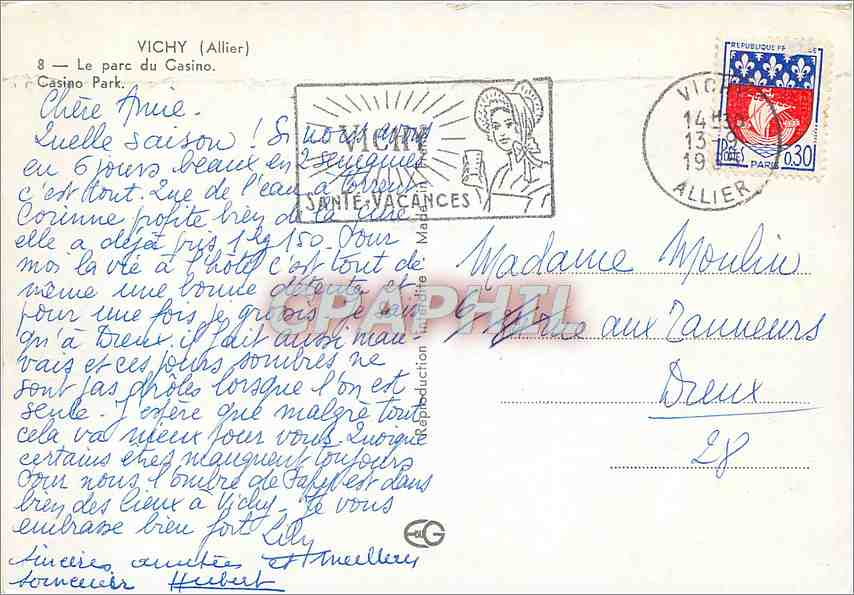 VICHY (Allier)
8 — Le parc du Casino.
Casino Park.
Chère Annie.
Quelle saison ! Si nous avons
eu 6 jours beaux en 2 semaines
c'est tout. Que de l'eau à torrent
Corinne profite bien de la cure
elle a déjà pris 1 kg 150. Pour
moi la vie à l'hôtel c'est tout de
même une bonne détente et
pour une fois je grossis. Je sais
qu'à Dreux il fait aussi mau
vais et ces jours sombres ne
sont pas drôles lorsque l'on est
seule. J'espère que malgré tout
cela va mieux pour vous. Quoique
certains êtres manquent toujours
Pour nous l'ombre de Papy est dans
bien des lieux à Vichy. Je vous
embrasse bien fort Lily
Sincères amitiés et meilleur
souvenir Hubert
VICHY
SANTÉ-VACANCES
Reproduction Interdite Made in
CPAPHIL
REPUBLIQUE FR
PARIS 0,30
POSTES
VICHY
14H30
13-
19
ALLIER
Madame Moulin
rue aux Tanneurs
Dreux
28
EG